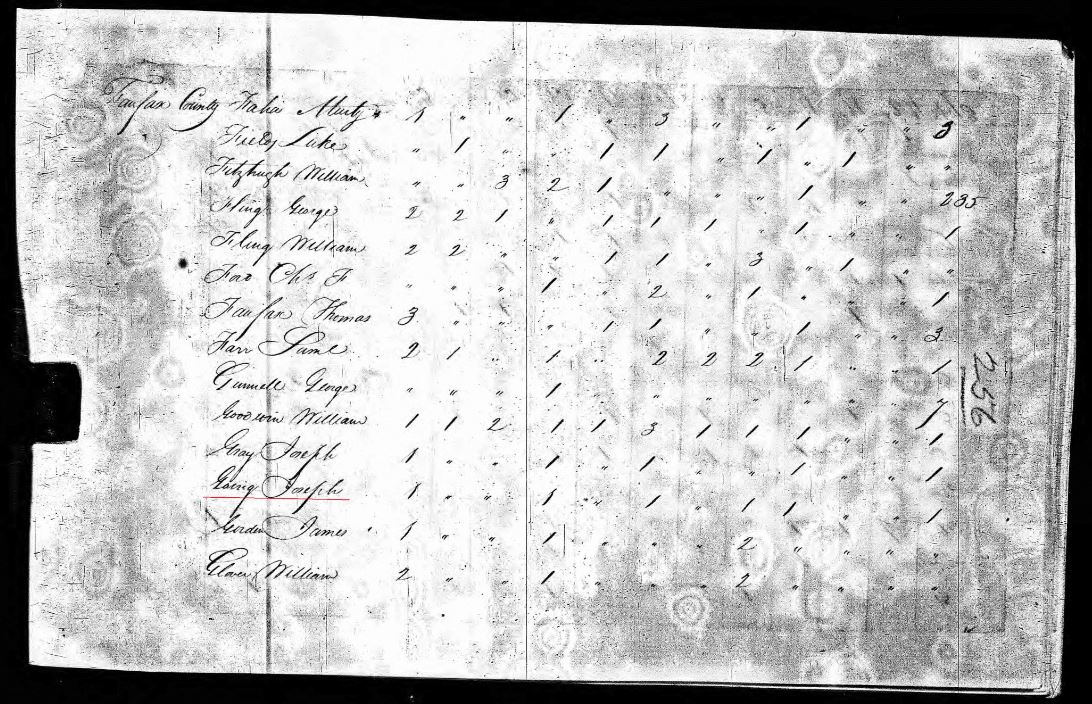 Fairfax County Muty 1 " " 1 " 3 " " 1 " " 3
Fields Luke " 1 " " 1 1 " 1 " 1 " "
Fitzhugh William " " 3 2 1 " " " 1 " " 235
Fling George 2 2 1 " 1 1 1 " 1 " " 1
Fling William 2 2 " " 1 1 " 3 " 1 " "
Fox Chs F " " " 1 " 2 " 1 " " " 1
Fairfax Thomas 3 " " " 1 1 " " 1 " " 3
Farr Saml 2 1 " 1 " 2 2 2 1 " " 1
Gunnell George " " " 1 " " " " " " " 7
Goodwin William 1 1 2 1 1 3 1 1 1 " " 1
Gray Joseph 1 " " 1 " 1 " " 1 " " 1
Going Joseph 1 " " 1 " 1 " 1 1 " " 1
Gorden James 1 " " 1 " " " 2 " " " "
Glover William 2 " " 1 " " " 2 " " " "
256